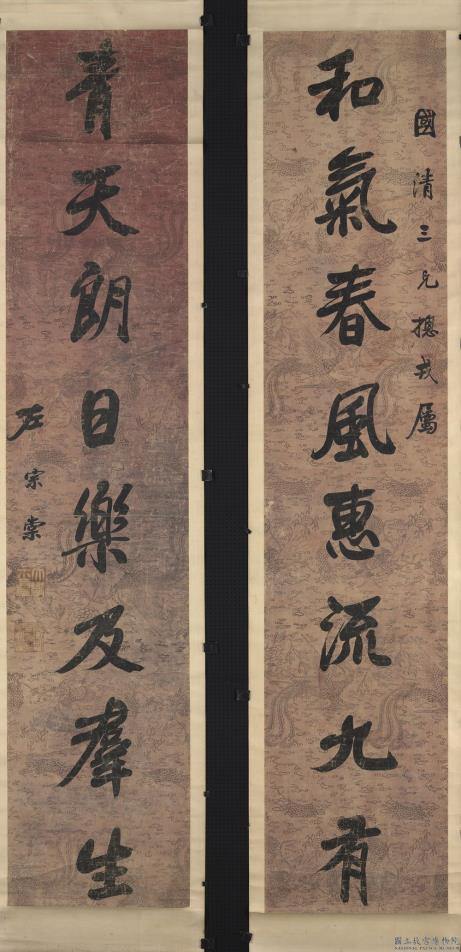 國清三兄摠戎屬
和氣春風惠流九有
青天朗日樂及羣生
左宗棠
國立故宮博物院
NATIONAL PALACE MUSEUM